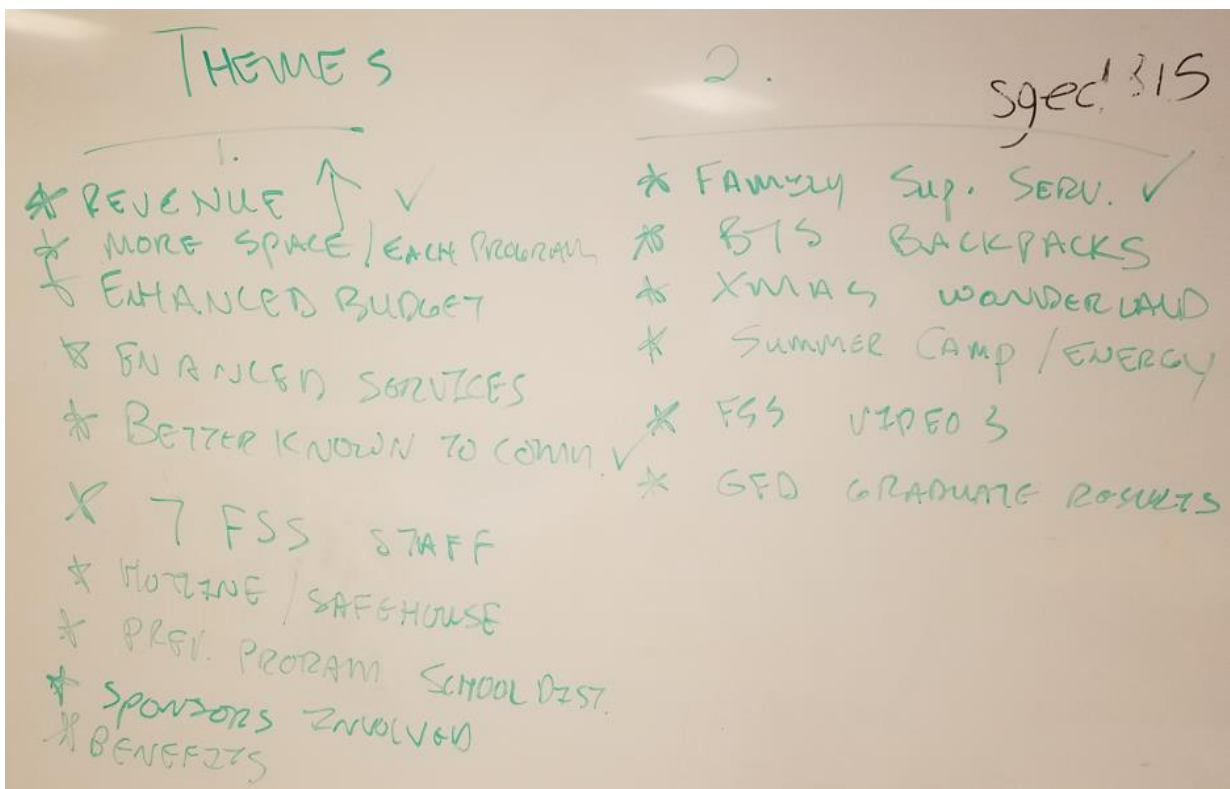 THEMES
1.
* REVENUE ↑ ✓
* MORE SPACE / EACH PROGRAM
* ENHANCED BUDGET
* ENANCED SERVICES
* BETTER KNOWN TO COMM. ✓
* 7 FSS STAFF
* HOTLINE / SAFEHOUSE
* PREV. PRORAM SCHOOL DIST.
* SPONSORS INVOLVED
* BENEFITS
2.
* FAMILY SUP. SERV. ✓
* BTS BACKPACKS
* XMAS WONDERLAND
* SUMMER CAMP / ENERGY
* FSS VIDEOS
* GED GRADUATE RESULTS